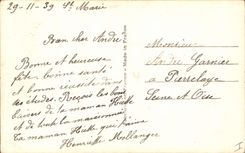 29-11-39 Ste Marie
Bien cher André
Bonne et heureuse
fête, bonne santé
et bonne réussite dans
tes études. Reçois les bons
baisers de ta maman
et de toute la maisonnée
Ta maman qui t'aime
Henriette
Monsieur
André Garnier
à Pierrelaye
Seine et Oise